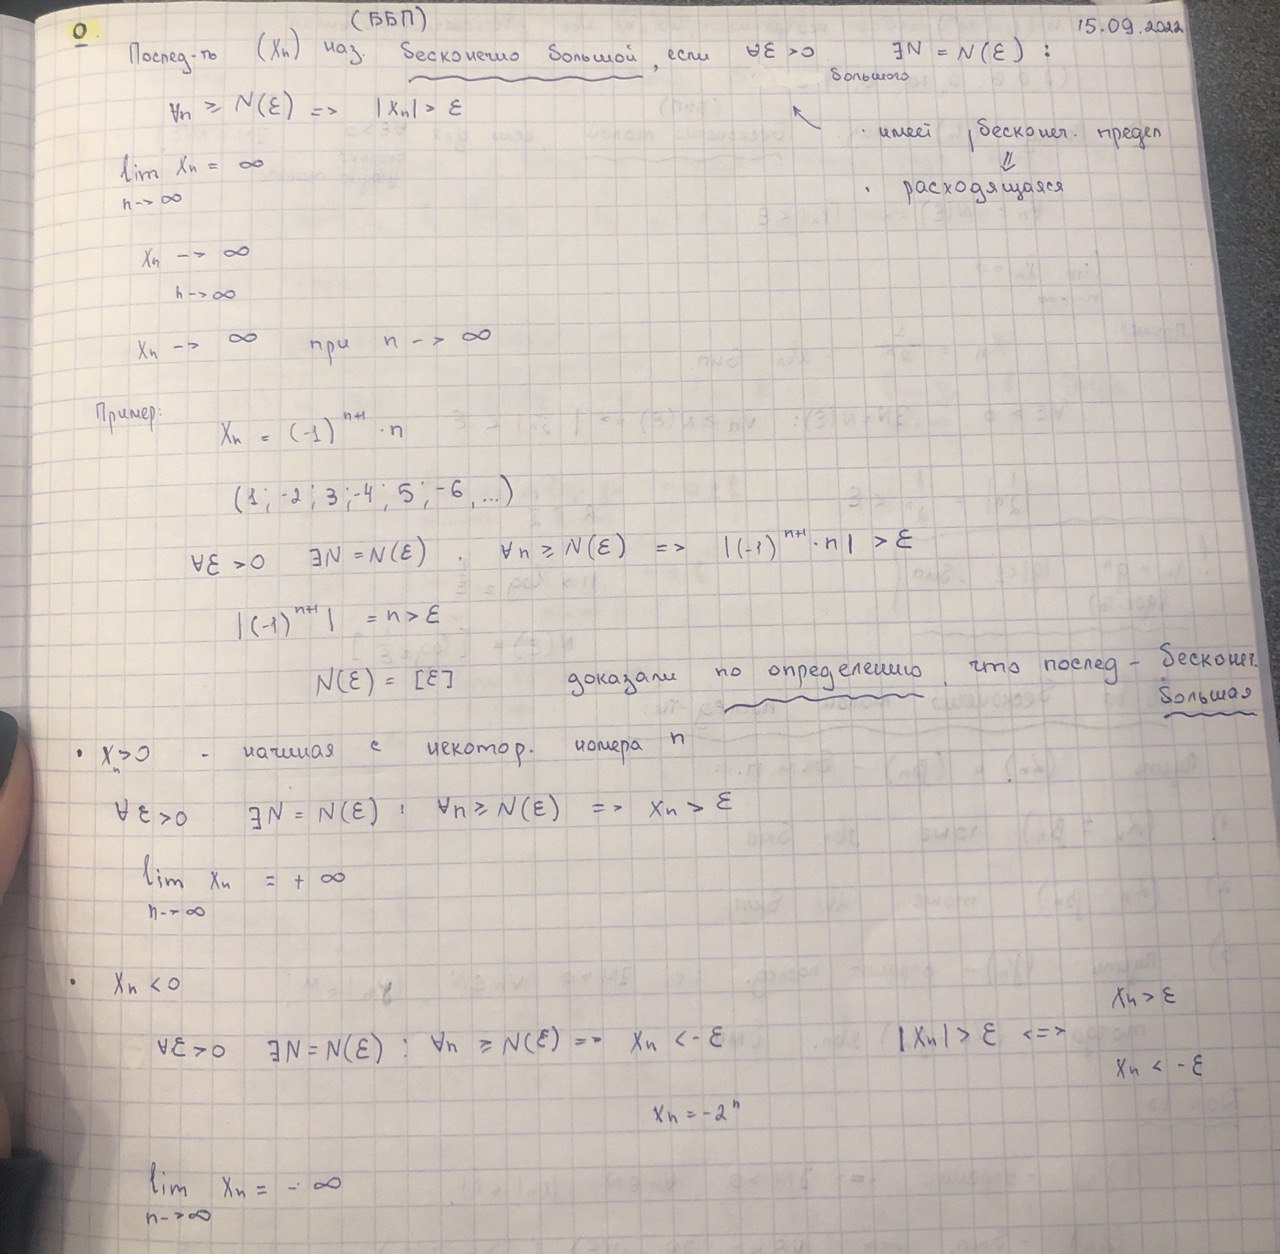 (ББП)
15.09.2022
O Послед-ть (Xn) наз. бесконечно большой, если ∀ε > 0 ∃N = N(ε) :
большого
∀n ≥ N(ε) => |Xn| > ε
· имеет бесконеч. предел
⇓
· расходящаяся
lim Xn = ∞
n -> ∞
Xn -> ∞
n -> ∞
Xn -> ∞ при n -> ∞
Пример:
Xn = (-1)^{n+1} · n
(1; -2; 3; -4; 5; -6, ...)
∀ε > 0 ∃N = N(ε) . ∀n ≥ N(ε) => |(-1)^{n+1} · n| > ε
|(-1)^{n+1}| = n > ε
N(ε) = [ε] доказали по определению, что послед - бесконеч.
большая
· Xn > 0 - начиная с некотор. номера n
∀ε > 0 ∃N = N(ε) : ∀n ≥ N(ε) => Xn > ε
lim Xn = + ∞
n -> ∞
· Xn < 0
Xn > ε
∀ε > 0 ∃N = N(ε) : ∀n ≥ N(ε) => Xn < -ε |Xn| > ε <=>
Xn < -ε
Xn = -2^n
lim Xn = - ∞
n -> ∞